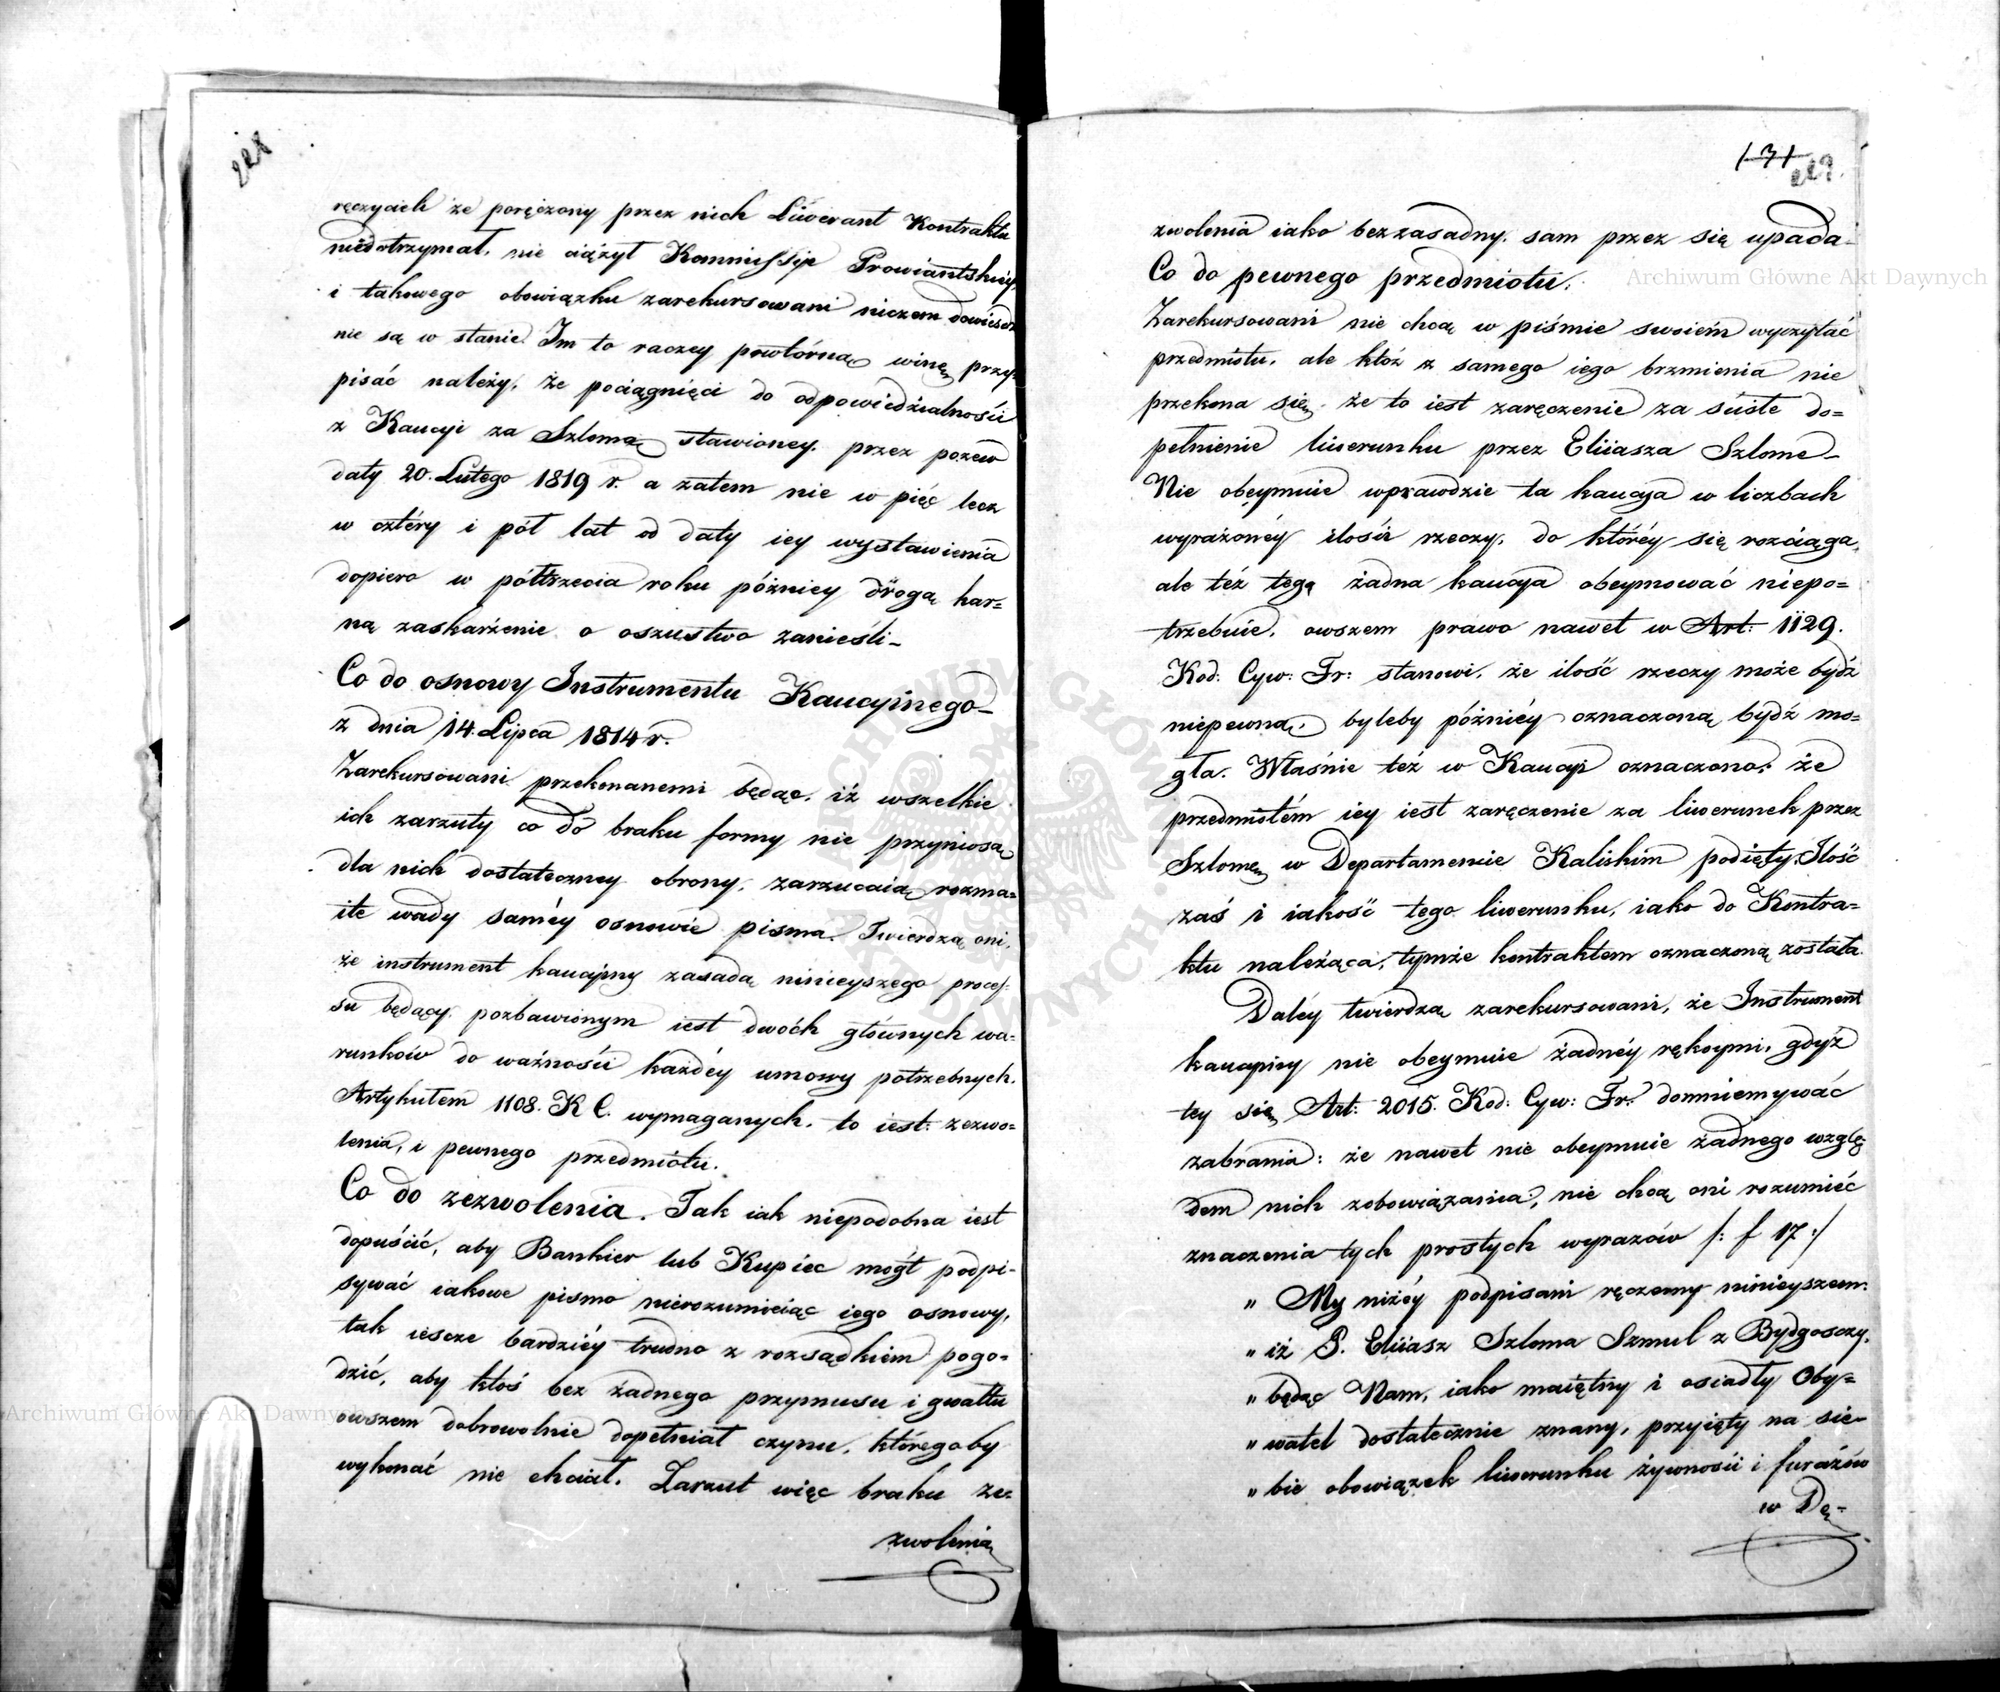 228
ręczycieli że poręczony przez nich Liwerant Kontraktu
niedotrzymał, nie ciążył Kommissye Prowiantskiey,
i takowego obowiązku zarekursowani niczem dowieść
nie są w stanie. Im to raczey powtórną winę przy=
pisać należy, że pociągnięci do odpowiedzialności
z Kaucyi za Szlomą stawioney, przez pozew
daty 20. Lutego 1819 r. a zatem nie w pięć lecz
w cztéry i pół lat od daty iey wystawienia
dopiero w półtrzecia roku późniey drogą kar=
ną zaskarżenie o oszustwo zanieśli_
Co do osnowy Instrumentu Kaucyinego_
z dnia 14. Lipca 1814 r.
Zarekursowani przekonanemi będąc, iż wszelkie
ich zarzuty co do braku formy nie przyniosą
dla nich dostateczney obrony, zarzucaią rozma=
ite wady saméy osnowie pisma. Twierdzą oni,
że instrument kaucyiny zasadą ninieyszego proces=
su będący, pozbawionym iest dwóch głównych wa=
runków do ważności każdéy umowy potrzebnych,
Artykułem 1108. K C. wymaganych, to iest: zezwo=
lenia, i pewnego przedmiotu.
Co do zezwolenia. Tak iak niepodobna iest
dopuścić, aby Bankier lub Kupiec mógł podpi=
sywać iakowe pismo nierozumieiąc iego osnowy,
tak ieszcze bardziéy trudno z rozsądkiem pogo=
dzić, aby ktoś bez żadnego przymusu i gwałtu
owszem dobrowolnie dopełniał czynu, któregoby
wykonać nie chciał. Zarzut więc braku ze=
zwolenia
131
229.
zwolenia iako bezzasadny, sam przez się upada_
Co do pewnego przedmiotu.
Zarekursowani nie chcą w piśmie swoiém wyczytać
przedmiotu, ale któż z samego iego brzmienia nie
przekona się, że to iest zaręczenie za ściśłe do=
pełnienie liwerunku przez Eliiasza Szlome_
Nie obeymuie wprawdzie ta kaucya w liczbach
wyrażonéy ilości rzeczy, do któréy się rozciąga,
ale téż tego żadna kaucya obeymować niepo=
trzebuie, owszem prawo nawet w Art: 1129.
Kod: Cyw: Fr: stanowi, że ilość rzeczy może bydź
niepewna, byleby późniéy oznaczoną bydź mo=
gła. Właśnie téż w Kaucyi oznaczono, że
przedmiotém iey iest zaręczenie za liwerunek przez
Szlomę w Departamencie Kaliskim podięty. Ilość
zaś i iakość tego liwerunku, iako do Kontra=
ktu należąca, tymże kontraktem oznaczoną została.
Daléy twierdzą zarekursowani, że Instrument
kaucyiny nie obeymuie żadnéy rękoymi, gdyż
tey się Art: 2015. Kod: Cyw: Fr: domniemywać
zabrania: że nawet nie obeymuie żadnego wzglę=
dem nich zobowiązania, nie chcą oni rozumieć
znaczenia tych prostych wyrazów /: f 17 :/
" My niżéy podpisani ręczemy ninieyszem,
" iż P. Eliiasz Szloma Szmul z Bydgoszczy,
" będąc Nam, iako maiętny i osiadły Oby=
" watel dostatecznie znany, przyięty na sie=
" bie obowiązek liwerunku żywności i furażów
w De=